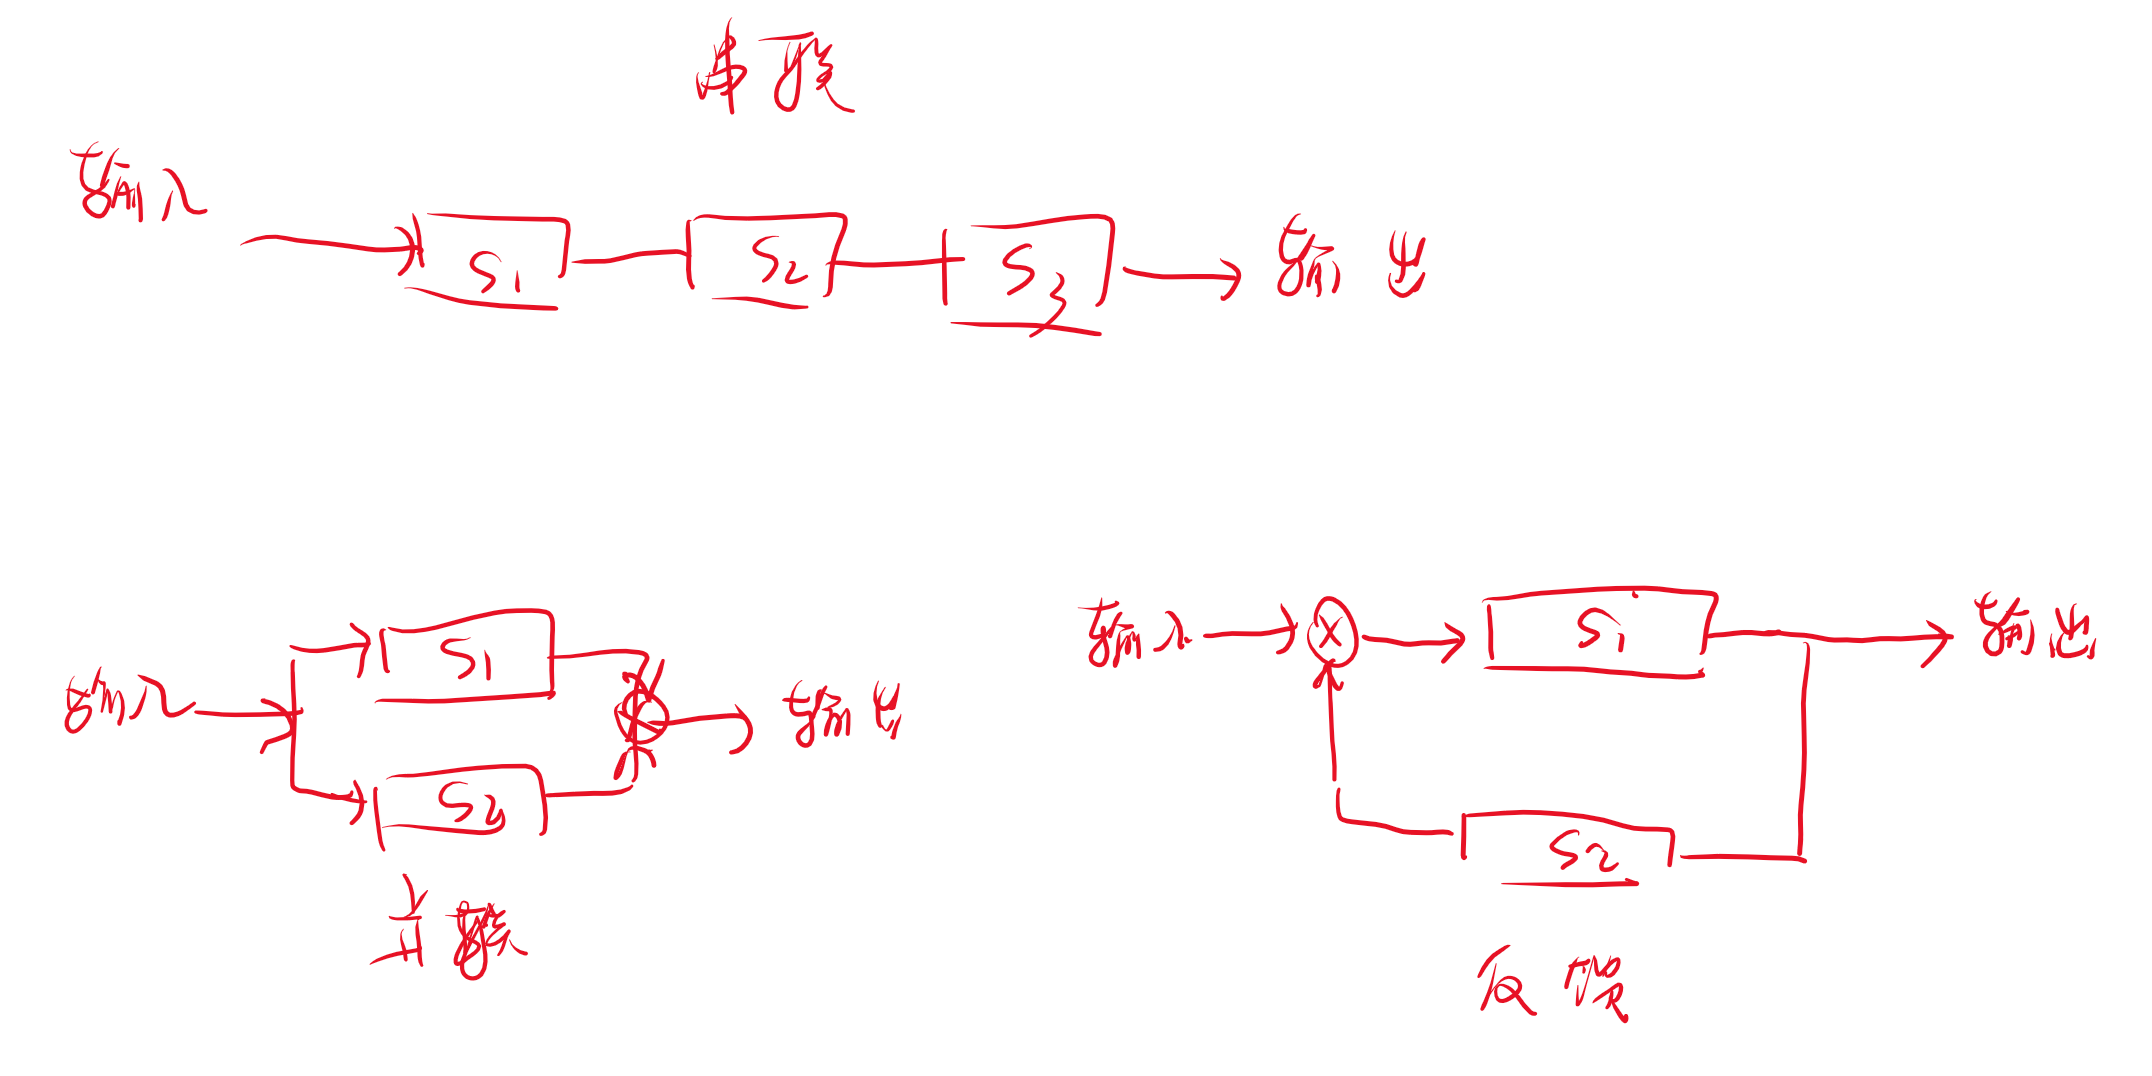 串联
输入
S1 S2 S3 输出
输入 S1 输出
S2
并联
输入 S1 输出
S2
反馈